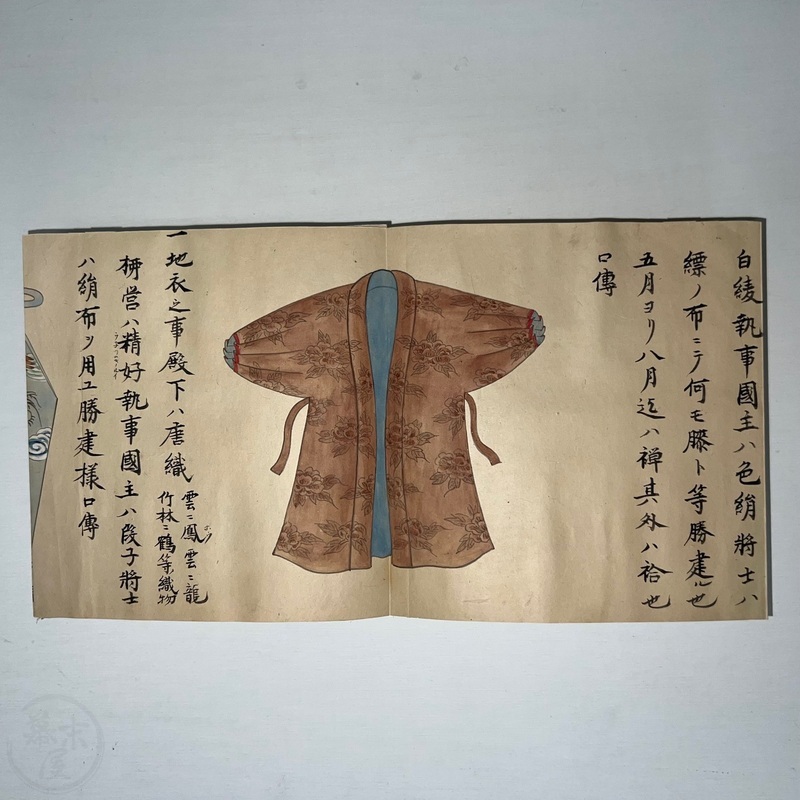 白綾執事國主ハ色絹將士ハ
縹ノ布ニテ何モ膝ト等勝建ル也
五月ヨリ八月迄ハ襌其外ハ袷也
口傳
一地衣之事殿下ハ唐織
雲ニ鳳雲ニ龍
竹林ニ鶴等織物
柳営ハ精好執事國主ハ段子將士
ハ絹布ヲ用ユ勝建様口傳
幕末屋